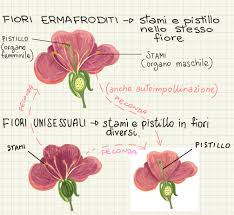 FIORI ERMAFRODITI → stami e pistillo
nello stesso
fiore
PISTILLO
(organo
femminile)
STAMI
(organo maschile)
FECONDA
(anche autoimpollinazione)
FECONDA
FIORI UNISESSUALI → stami e pistillo in fiori
diversi
STAMI
FECONDA
PISTILLO